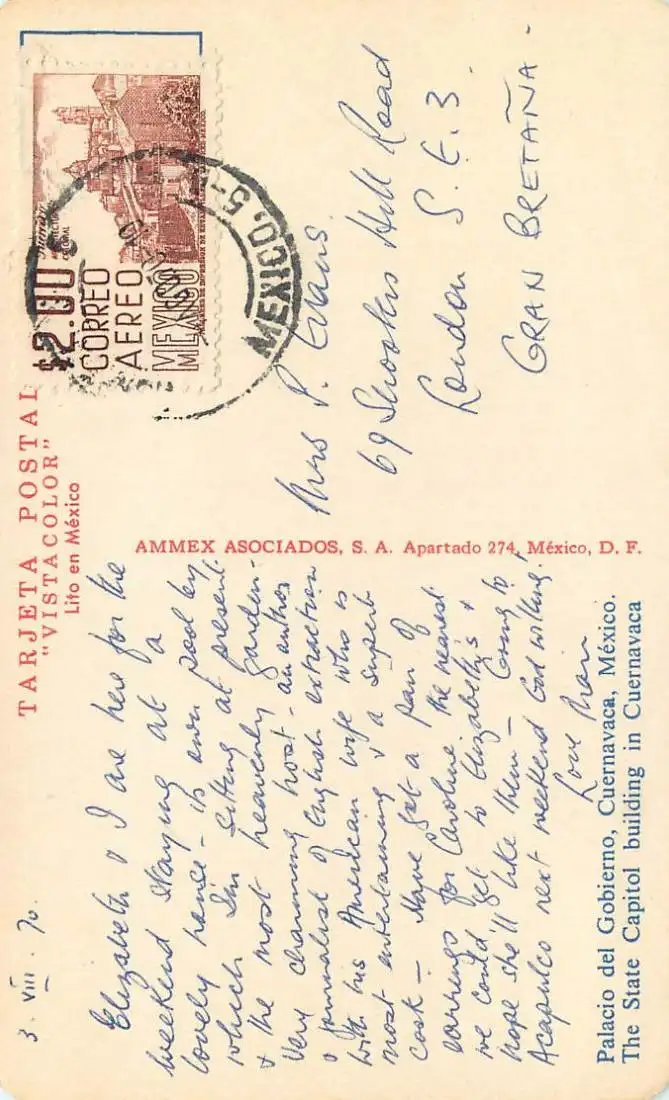 3. VIII. 70.
Elizabeth & I are here for the
weekend staying at a
lovely house - its own pool by
which I'm sitting at present.
& the most heavenly garden.
Very charming host - an author
& journalist of English extraction
with his American wife who is
most entertaining & a superb
cook - Have got a pair of
earrings for Caroline the nearest
we could get to Elizabeth's &
hope she'll like them - Going to
Acapulco next weekend God willing!
Love
Palacio del Gobierno, Cuernavaca, México.
The State Capitol building in Cuernavaca
TARJETA POSTAL
"VISTACOLOR"
Lito en México
AMMEX ASOCIADOS, S. A. Apartado 274, México, D. F.
$2.00
CORREO
AEREO
MEXICO
COLONIAL
MEXICO, 5
Mrs P. Evans.
69 Shooters Hill Road
London S.E.3.
GRAN BRETAÑA -